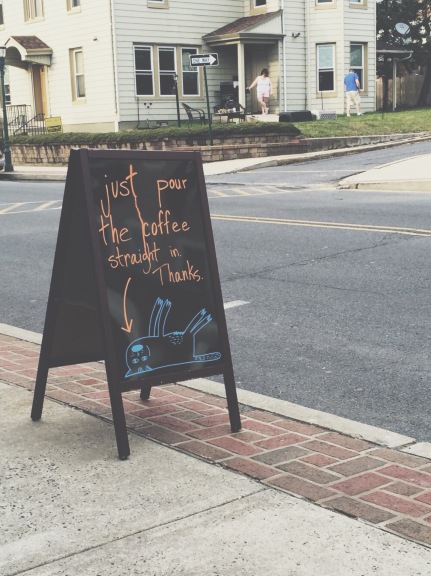 ONE WAY
just pour
the coffee
straight in.
Thanks.